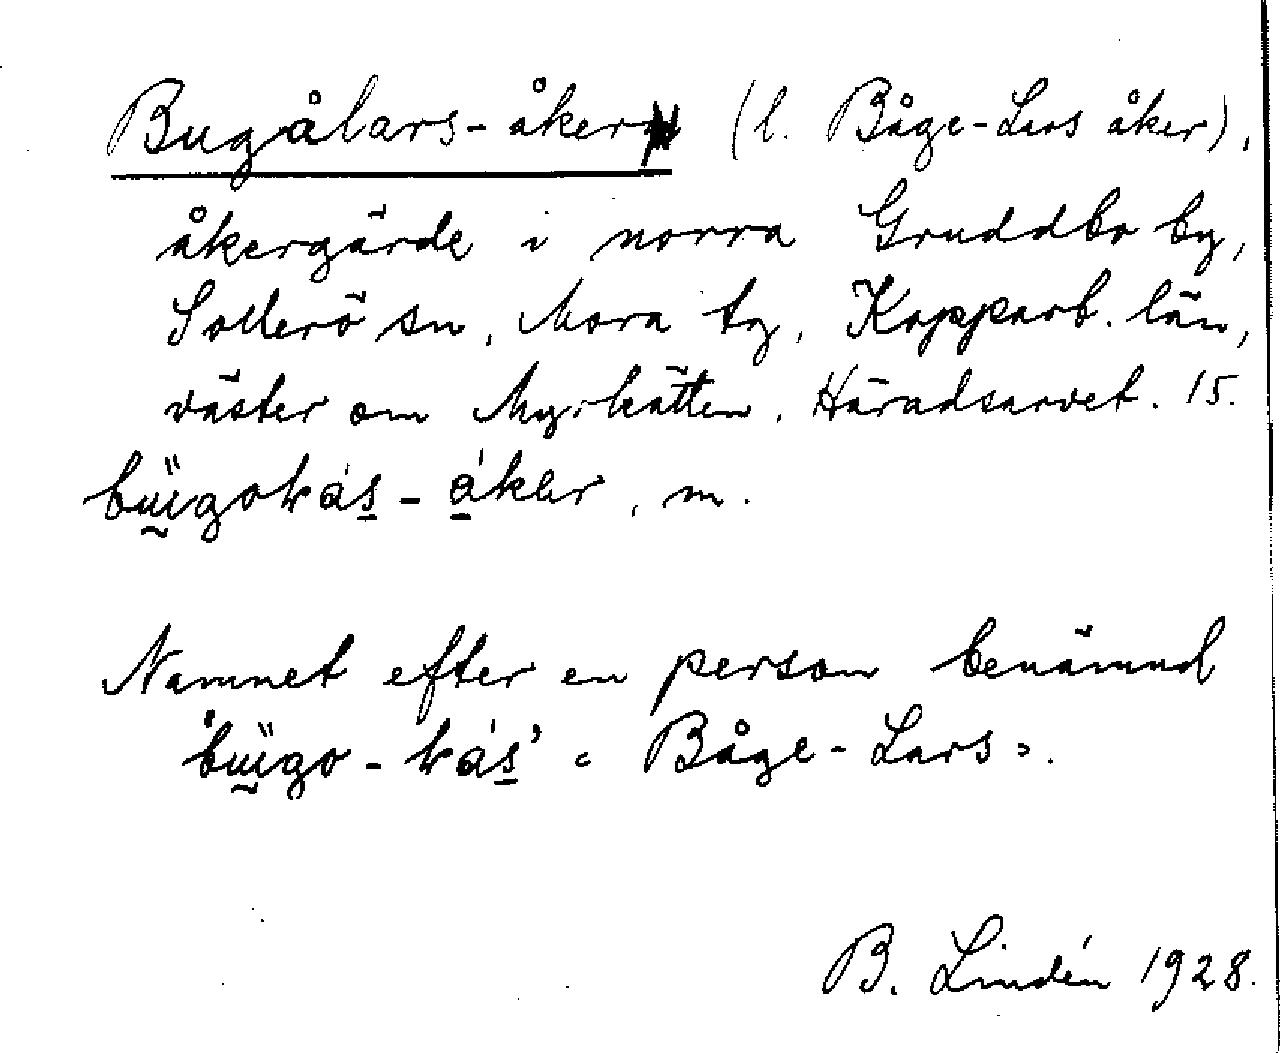 Bugålars-åker (l. Båge-Lars åker),
åkergärde i norra Gruddbo by,
Sollerö sn, Mora tg, Kopparb. län,
väster om Myrkätten. Häradsarvet. 15.
m.
Namnet efter en person benämnd
"Båge-Lars".
B. Lindén 1928.